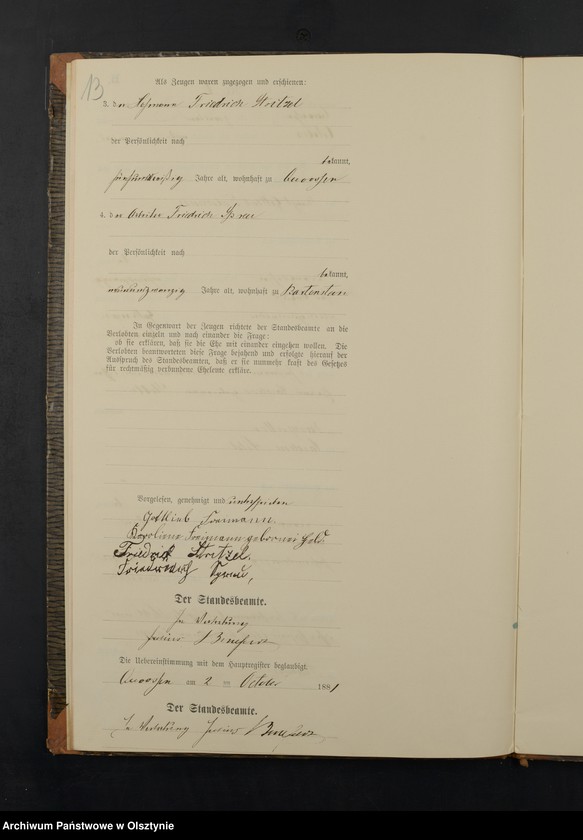 13
Als Zeugen waren zugezogen und erschienen:
3. der Friedrich Stritzel
der Persönlichkeit nach
bekannt,
Jahre alt, wohnhaft zu
4. der Arbeiter Friedrich
der Persönlichkeit nach
bekannt,
Jahre alt, wohnhaft zu Bartenstein
In Gegenwart der Zeugen richtete der Standesbeamte an die
Verlobten einzeln und nach einander die Frage:
ob sie erklären, daß sie die Ehe mit einander eingehen wollen. Die
Verlobten beantworteten diese Frage bejahend und erfolgte hierauf der
Ausspruch des Standesbeamten, daß er sie nunmehr kraft des Gesetzes
für rechtmäßig verbundene Eheleute erkläre.
Vorgelesen, genehmigt und unterschrieben
Gottlieb
Karoline geborene
Friedrich Stritzel.
Friederich
Der Standesbeamte.
In Vertretung
Julius
Die Uebereinstimmung mit dem Hauptregister beglaubigt.
am 2 ten October 1881
Der Standesbeamte.
In Vertretung Julius
Archiwum Państwowe w Olsztynie